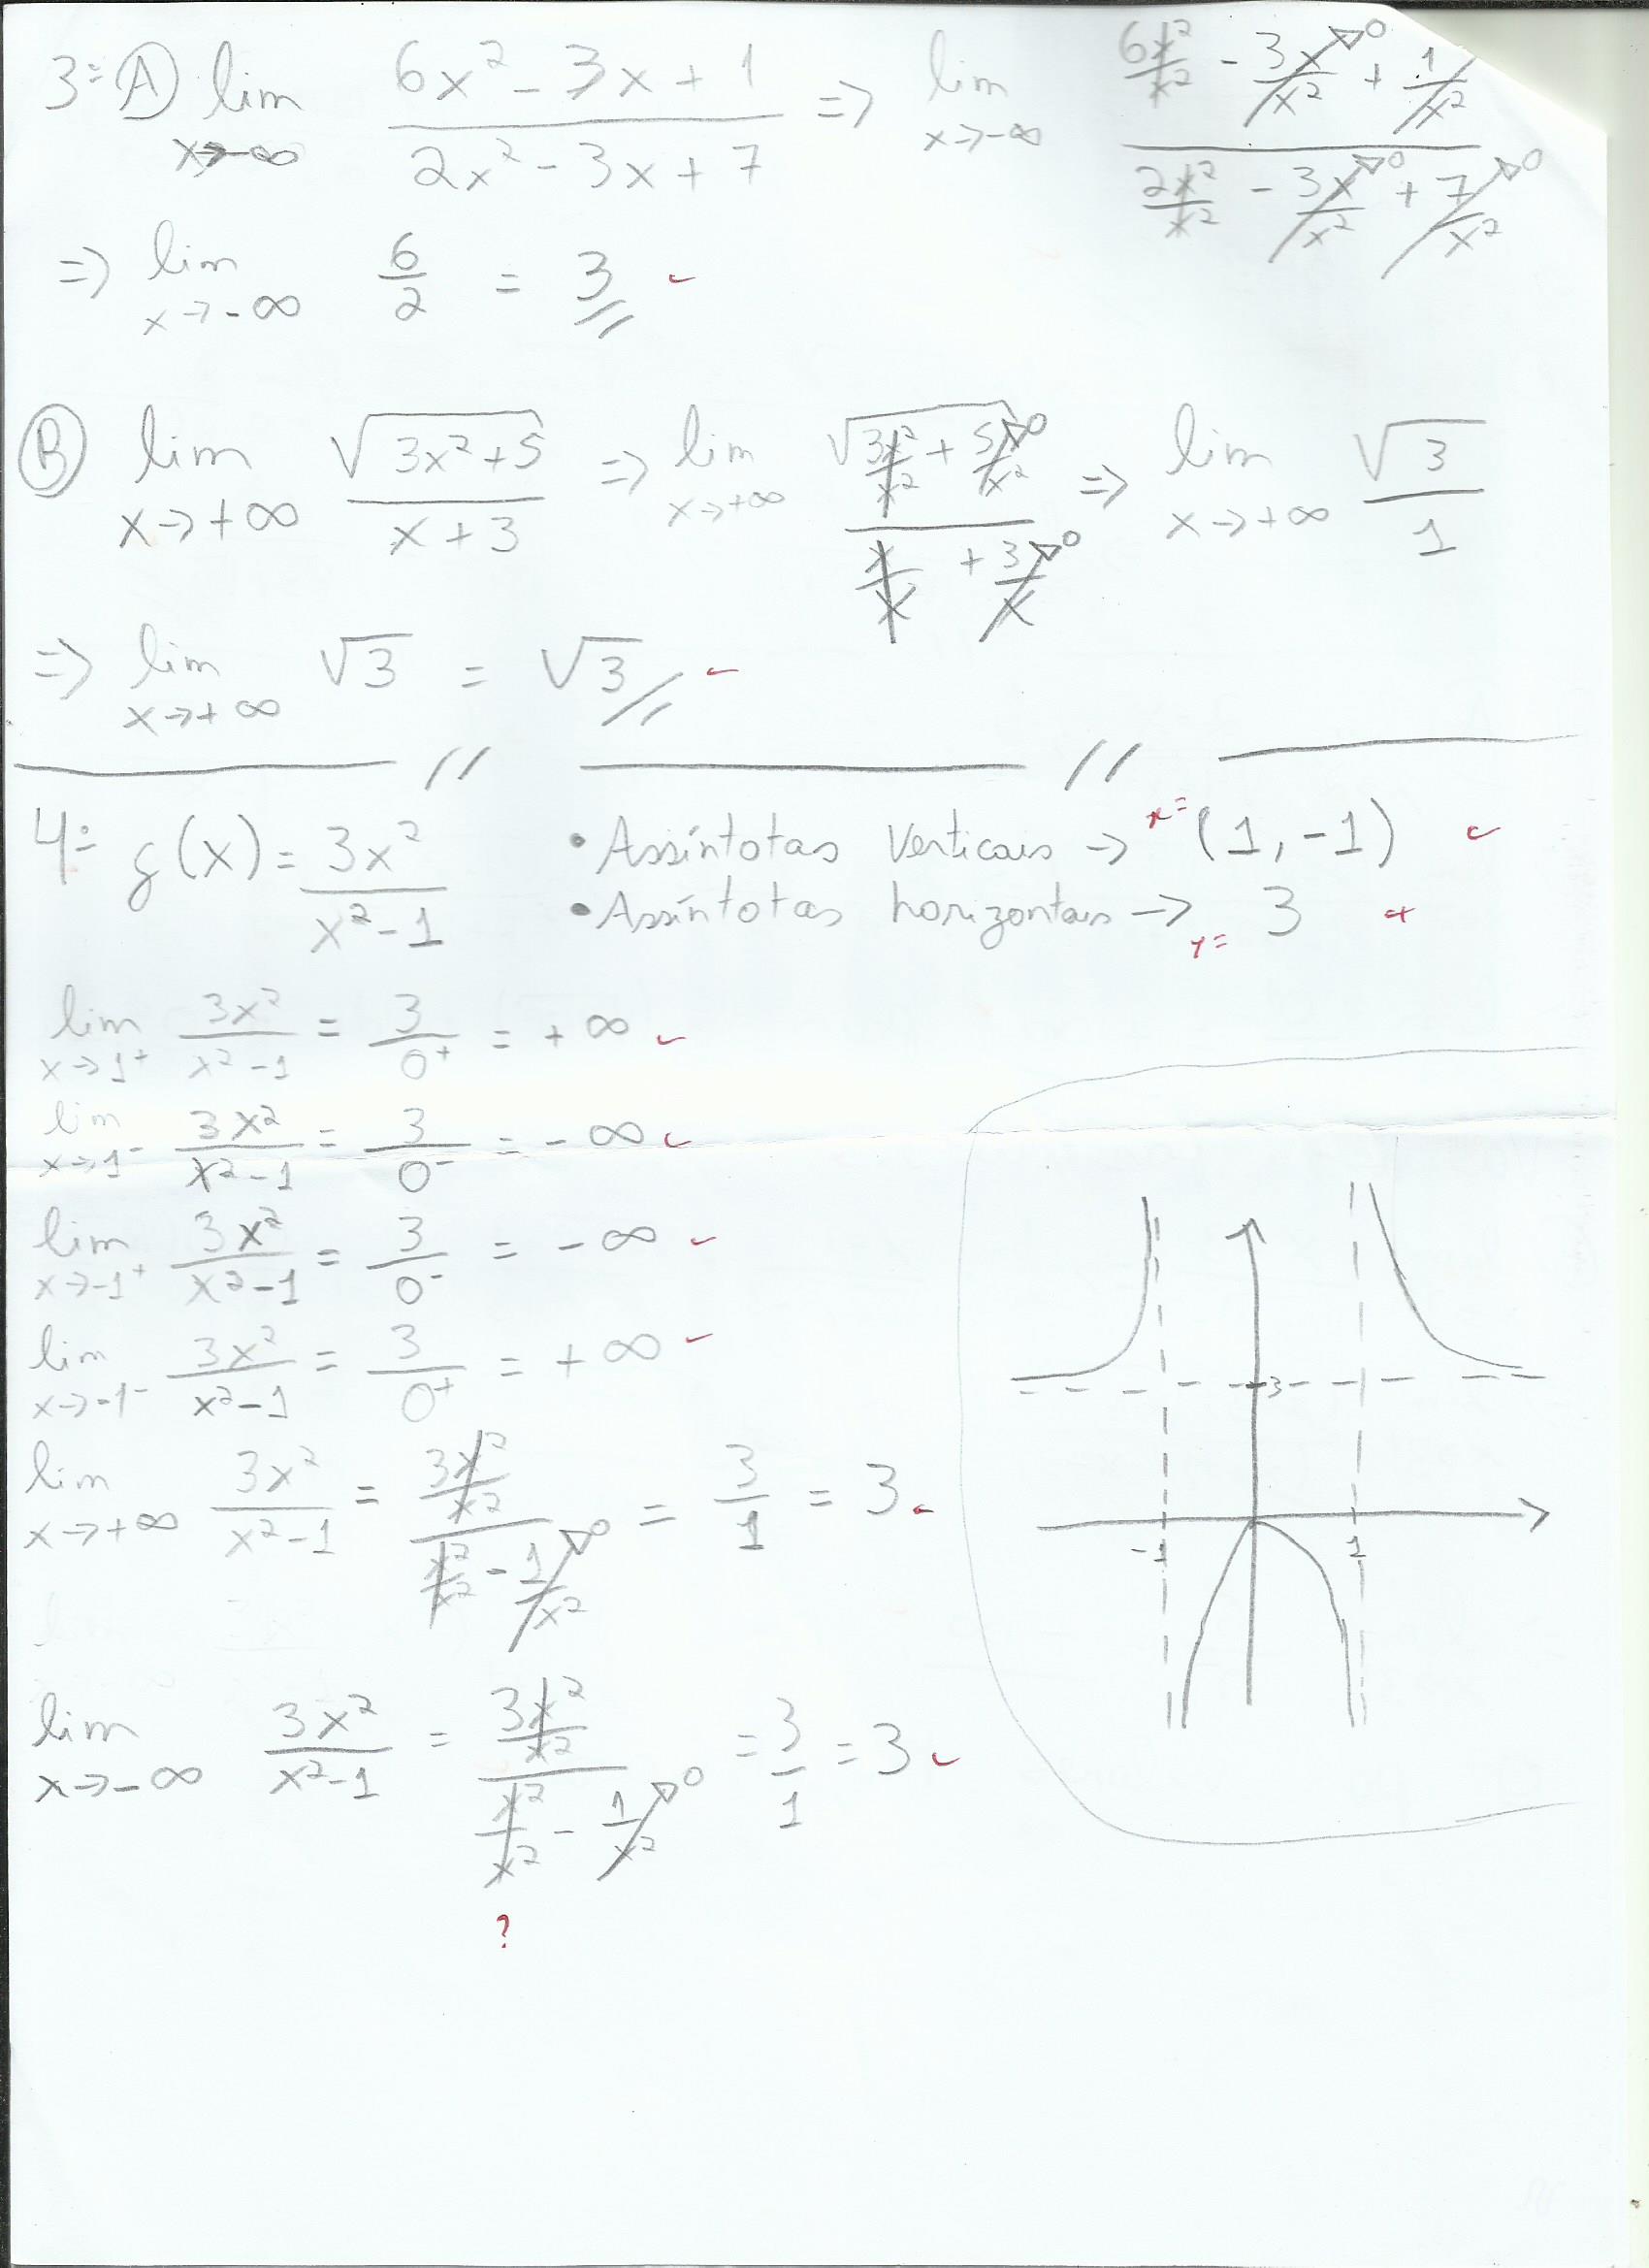 3= A) lim x→-∞ (6x² - 3x + 1)/(2x² - 3x + 7) => lim x→-∞ (6x²/x² - 3x/x² →0 + 1/x²)/(2x²/x² - 3x/x² →0 + 7/x² →0)
=> lim x→-∞ 6/2 = 3
B) lim x→+∞ √(3x²+5)/(x+3) => lim x→+∞ √(3x²/x² + 5/x² →0)/(x/x + 3/x →0) => lim x→+∞ √3/1
=> lim x→+∞ √3 = √3
4= g(x) = 3x²/(x²-1)
• Assíntotas Verticais → x= (1, -1)
• Assíntotas horizontais → y= 3
lim x→1⁺ 3x²/(x²-1) = 3/0⁺ = +∞
lim x→1⁻ 3x²/(x²-1) = 3/0⁻ = -∞
lim x→-1⁺ 3x²/(x²-1) = 3/0⁻ = -∞
lim x→-1⁻ 3x²/(x²-1) = 3/0⁺ = +∞
lim x→+∞ 3x²/(x²-1) = (3x²/x²)/(x²/x² - 1/x² →0) = 3/1 = 3
lim x→-∞ 3x²/(x²-1) = (3x²/x²)/(x²/x² - 1/x² →0) = 3/1 = 3
?
3
-1 1